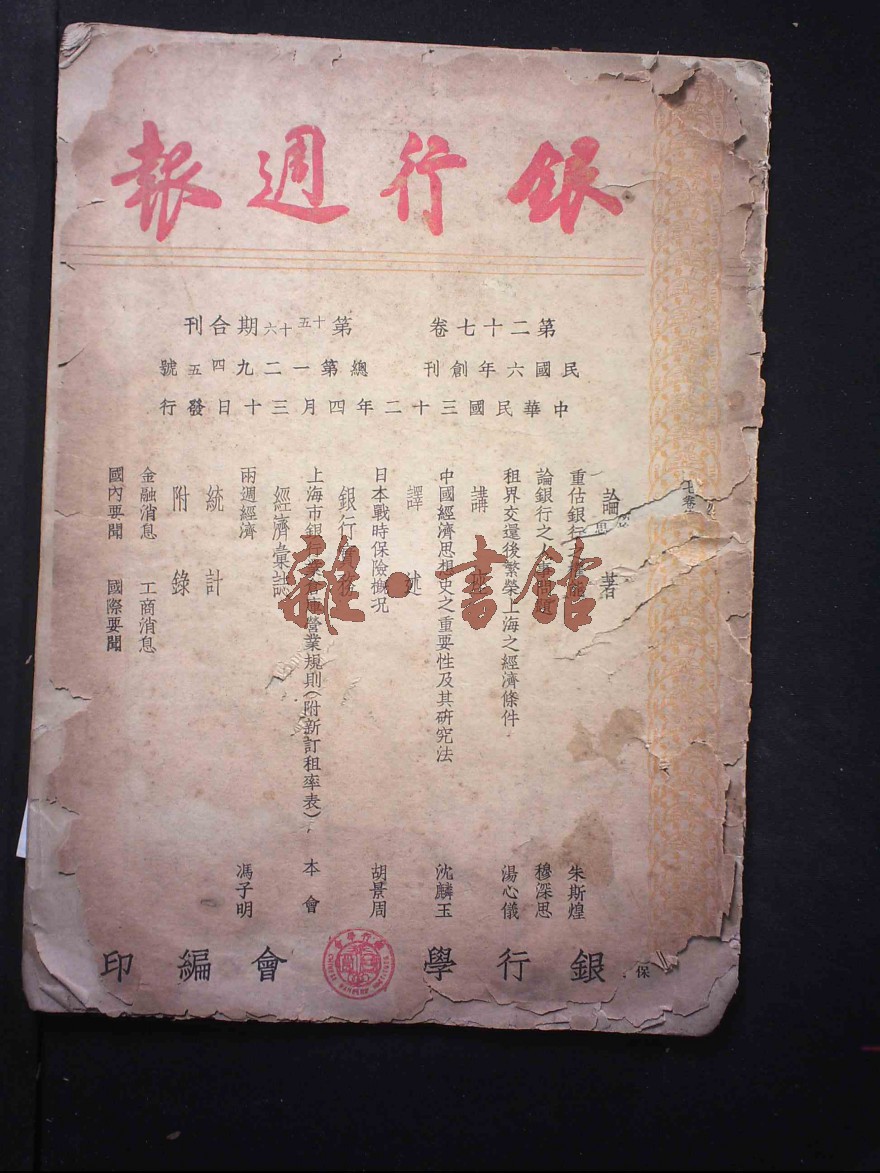 銀行週報
第二十七卷 第十五十六期合刊
民國六年創刊 總第一二九四五號
中華民國三十二年四月三十日發行
論著
重估銀行之
朱斯煌
論銀行之人事問題
穆深思
租界交還後繁榮上海之經濟條件
湯心儀
講壇
中國經濟思想史之重要性及其研究法
沈麟玉
譯述
日本戰時保險概況
胡景周
銀行實務
上海市銀行業倉庫營業規則(附新訂租率表)
本會
經濟彙誌
兩週經濟
馮子明
統計
附錄
金融消息 工商消息
國內要聞 國際要聞
銀行學會編印
保
雜·書館